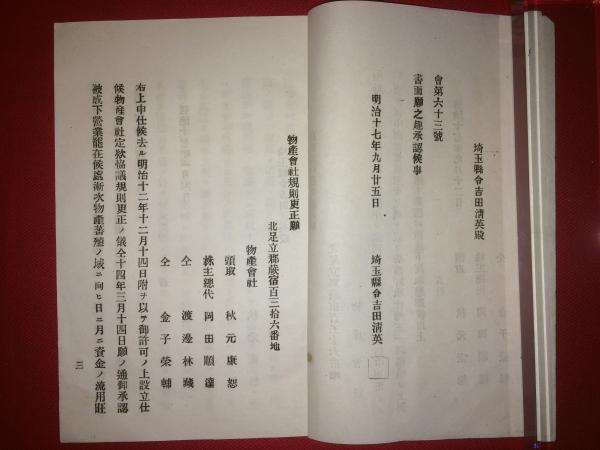 埼玉縣令吉田清英殿
會第六十三號
書面願之趣承認候事
明治十七年九月廿五日
埼玉縣令吉田清英
物產會社規則更正願
北足立郡蕨宿百三拾六番地
物產會社
頭取 秋元康恕
株主總代 岡田順達
仝 渡邊林藏
仝 金子榮輔
右上申仕候去ル明治十二年十二月十四日附ヲ以テ御許可ノ上設立仕
候物產會社定欵協議規則更正ノ儀仝十四年三月十四日願ノ通御承認
被成下營業罷在候處漸次物產蕃殖ノ域ニ向ヒ日ニ月ニ資金ノ流用旺
三